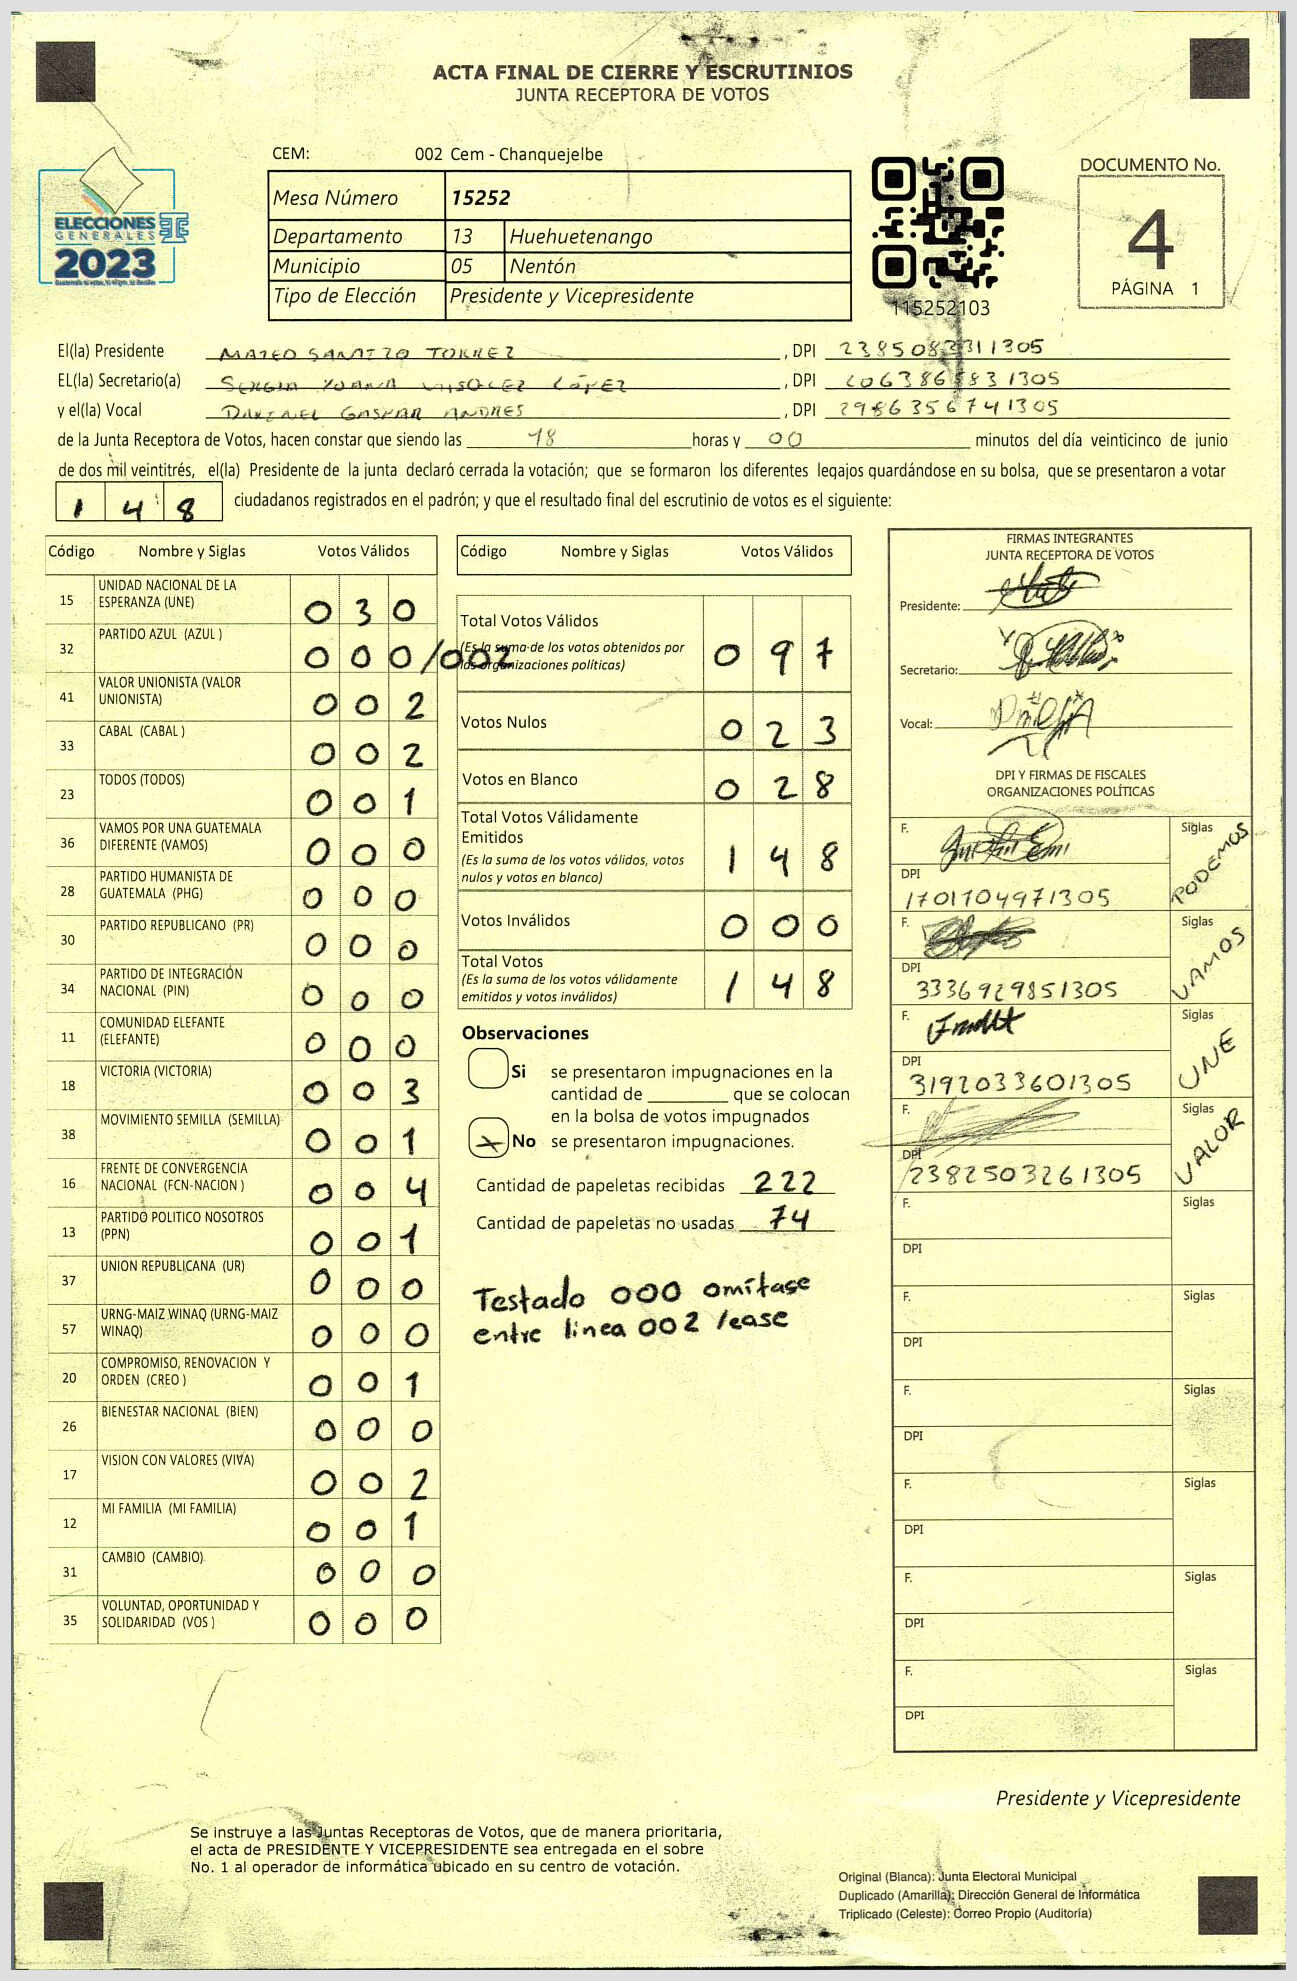 ACTA FINAL DE CIERRE Y ESCRUTINIOS
JUNTA RECEPTORA DE VOTOS
CEM: 002 Cem - Chanquejelbe
Mesa Número 15252
Departamento 13 Huehuetenango
Municipio 05 Nentón
Tipo de Elección Presidente y Vicepresidente
ELECCIONES
GENERALES
2023
115252103
DOCUMENTO No.
4
PÁGINA 1
El(la) Presidente MATEO TORREZ , DPI 2385083311305
EL(la) Secretario(a) LÓPEZ , DPI
y el(la) Vocal GASPAR ANDRES , DPI 2986356741305
de la Junta Receptora de Votos, hacen constar que siendo las 18 horas y 00 minutos del día veinticinco de junio
de dos mil veintitrés, el(la) Presidente de la junta declaró cerrada la votación; que se formaron los diferentes legajos guardándose en su bolsa, que se presentaron a votar
1 4 8 ciudadanos registrados en el padrón; y que el resultado final del escrutinio de votos es el siguiente:
Código Nombre y Siglas Votos Válidos
15 UNIDAD NACIONAL DE LA ESPERANZA (UNE) 0 3 0
32 PARTIDO AZUL (AZUL ) 0 0 0 /002
41 VALOR UNIONISTA (VALOR UNIONISTA) 0 0 2
33 CABAL (CABAL ) 0 0 2
23 TODOS (TODOS) 0 0 1
36 VAMOS POR UNA GUATEMALA DIFERENTE (VAMOS) 0 0 0
28 PARTIDO HUMANISTA DE GUATEMALA (PHG) 0 0 0
30 PARTIDO REPUBLICANO (PR) 0 0 0
34 PARTIDO DE INTEGRACIÓN NACIONAL (PIN) 0 0 0
11 COMUNIDAD ELEFANTE (ELEFANTE) 0 0 0
18 VICTORIA (VICTORIA) 0 0 3
38 MOVIMIENTO SEMILLA (SEMILLA) 0 0 1
16 FRENTE DE CONVERGENCIA NACIONAL (FCN-NACION ) 0 0 4
13 PARTIDO POLITICO NOSOTROS (PPN) 0 0 1
37 UNION REPUBLICANA (UR) 0 0 0
57 URNG-MAIZ WINAQ (URNG-MAIZ WINAQ) 0 0 0
20 COMPROMISO, RENOVACION Y ORDEN (CREO ) 0 0 1
26 BIENESTAR NACIONAL (BIEN) 0 0 0
17 VISION CON VALORES (VIVA) 0 0 2
12 MI FAMILIA (MI FAMILIA) 0 0 1
31 CAMBIO (CAMBIO) 0 0 0
35 VOLUNTAD, OPORTUNIDAD Y SOLIDARIDAD (VOS ) 0 0 0
Código Nombre y Siglas Votos Válidos
Total Votos Válidos 0 9 7
(Es la suma de los votos obtenidos por
las organizaciones políticas)
Votos Nulos 0 2 3
Votos en Blanco 0 2 8
Total Votos Válidamente
Emitidos 1 4 8
(Es la suma de los votos válidos, votos
nulos y votos en blanco)
Votos Inválidos 0 0 0
Total Votos 1 4 8
(Es la suma de los votos válidamente
emitidos y votos inválidos)
Observaciones
Si se presentaron impugnaciones en la
cantidad de ________ que se colocan
en la bolsa de votos impugnados
No se presentaron impugnaciones.
Cantidad de papeletas recibidas 222
Cantidad de papeletas no usadas 74
Testado 000 omitase
entre linea 002 lease
FIRMAS INTEGRANTES
JUNTA RECEPTORA DE VOTOS
Presidente:
Secretario:
Vocal:
DPI Y FIRMAS DE FISCALES
ORGANIZACIONES POLÍTICAS
F. Siglas PODEMOS
DPI 1701704971305
F. Siglas VAMOS
DPI 3336929851305
F. Siglas UNE
DPI 3192033601305
F. Siglas VALOR
DPI 2382503261305
F. Siglas
DPI
F. Siglas
DPI
F. Siglas
DPI
F. Siglas
DPI
F. Siglas
DPI
F. Siglas
DPI
Presidente y Vicepresidente
Se instruye a las Juntas Receptoras de Votos, que de manera prioritaria,
el acta de PRESIDENTE Y VICEPRESIDENTE sea entregada en el sobre
No. 1 al operador de informática ubicado en su centro de votación.
Original (Blanca): Junta Electoral Municipal
Duplicado (Amarilla): Dirección General de Informática
Triplicado (Celeste): Correo Propio (Auditoría)